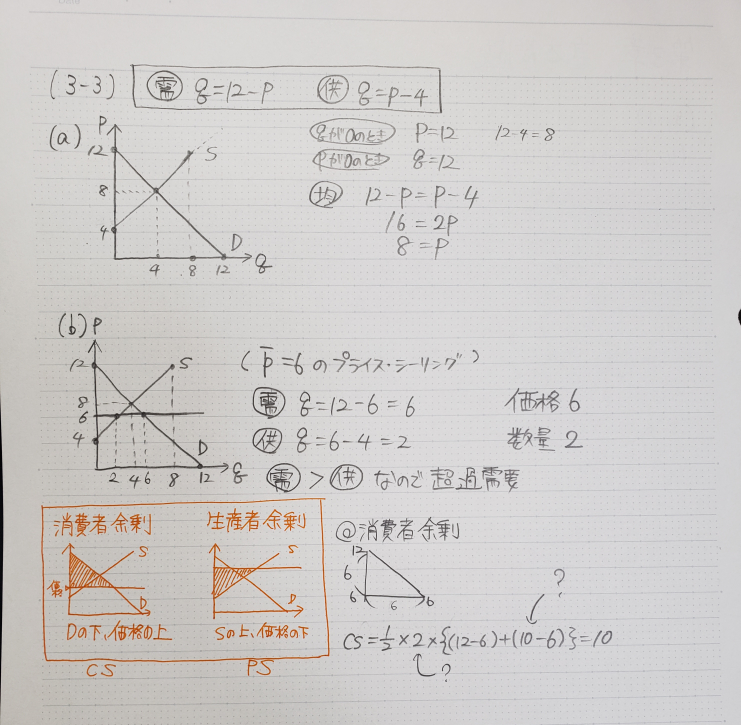 (3-3) 需 q=12-p 供 q=p-4
(a) P
12
8
4
S
D
4 8 12 q
qが0のとき P=12 12-4=8
Pが0のとき q=12
均 12-P=P-4
16=2P
8=P
(b) P
12
8
6
4
S
D
2 4 6 8 12 q
(p̅=6のプライス・シーリング)
需 q=12-6=6 価格 6
供 q=6-4=2 数量 2
需 > 供 なので 超過需要
消費者余剰 生産者余剰
S
D
S
D
Dの下、価格の上 Sの上、価格の下
CS PS
@消費者余剰
12
6
6 6 6
?
CS=1/2×2×{(12-6)+(10-6)}=10
?